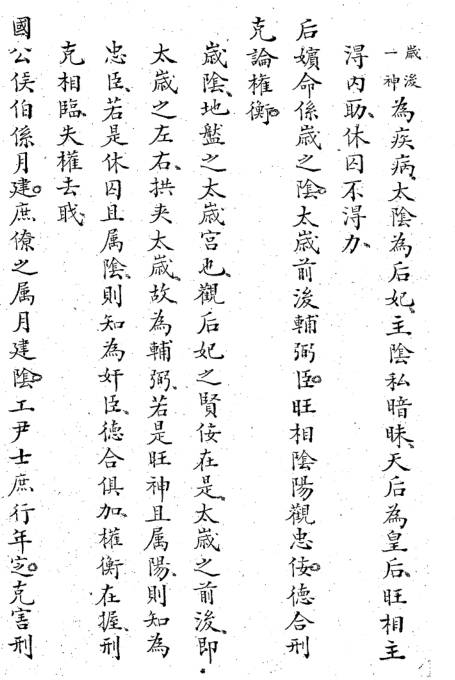 歲後一神為疾病、太陰為后妃、主陰私暗昧、天后為皇后、旺相主
淂內助、休囚不淂力、
后嬪命係歲之陰。太歲前後輔弼臣。旺相陰陽觀忠佞。德合刑
克論權衡。
歲陰、地盤之太歲宮也、觀后妃之賢佞在是、太歲之前後、即
太歲之左右、拱夾太歲、故為輔弼、若是旺神且属陽、則知為
忠臣、若是休囚且属陰、則知為奸臣、德合俱加、權衡在握、刑
克相臨、失權去職、
國公侯伯係月建。庶僚之属月建陰。工尹士庶行年定。克害刑